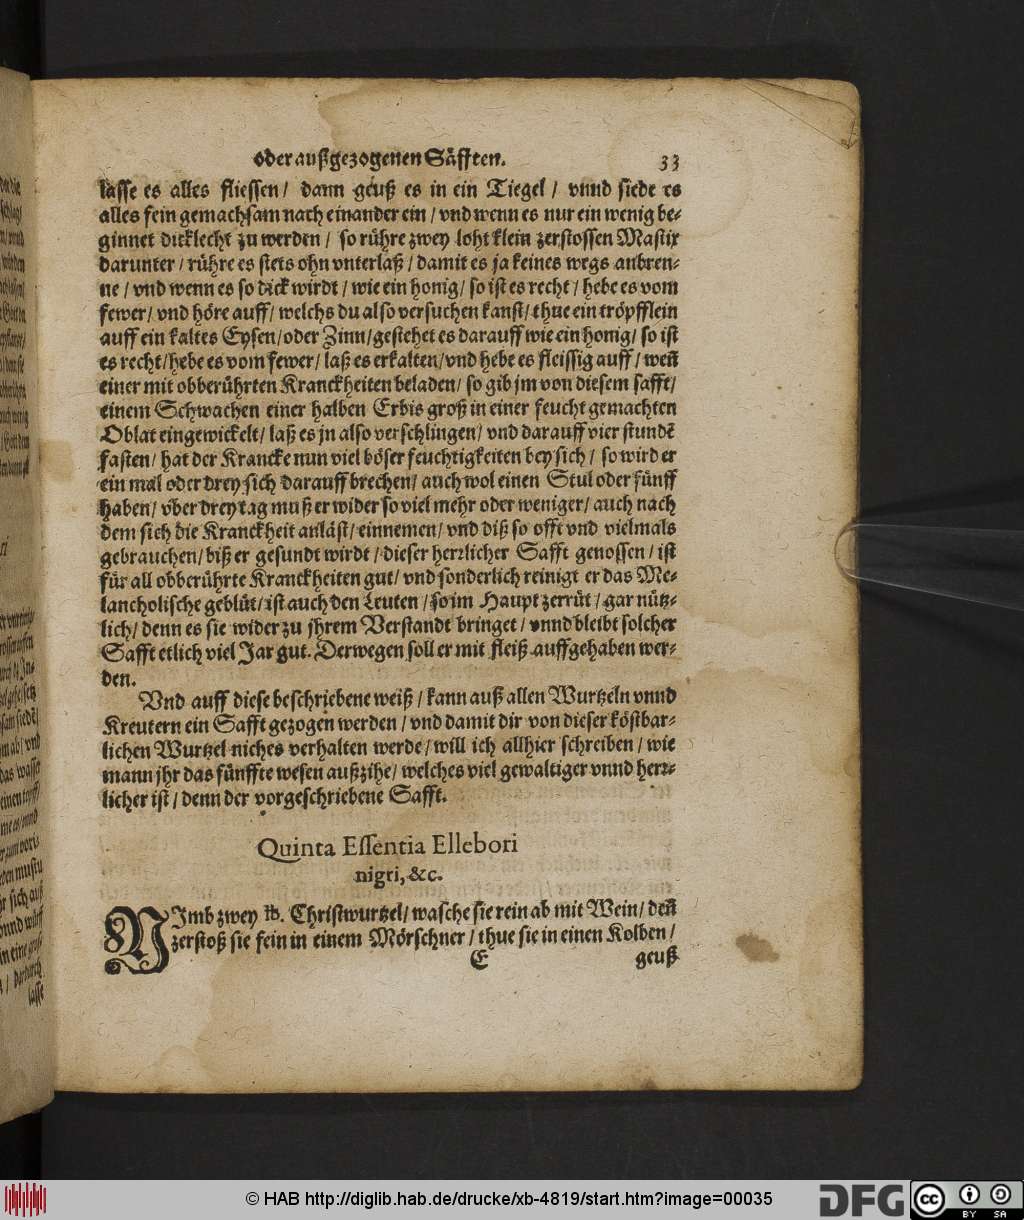 oder außgezogenen Säfften. 33
lasse es alles fliessen / dann geuß es in ein Tiegel / vnnd siede es
alles fein gemachsam nach einander ein / vnd wenn es nur ein wenig be-
ginnet dicklecht zu werden / so rühre zwey loht klein zerstossen Mastix
darunter / rühre es stets ohn vnterlaß / damit es ja keines wegs anbren-
ne / vnd wenn es so dick wirdt / wie ein honig / so ist es recht / hebe es vom
fewer / vnd höre auff / welchs du also versuchen kanst / thue ein tröpfflein
auff ein kaltes Eysen / oder Zinn / gestehet es darauff wie ein honig / so ist
es recht / hebe es vom fewer / laß es erkalten / vnd hebe es fleissig auff / weñ
einer mit obberührten Kranckheiten beladen / so gib jm von diesem safft /
einem Schwachen einer halben Erbis groß in einer feucht gemachten
Oblat eingewickelt / laß es jn also verschlingen / vnd darauff vier stundẽ
fasten / hat der Krancke nun viel böser feuchtigkeiten bey sich / so wird er
ein mal oder drey sich darauff brechen / auch wol einen Stul oder fünff
haben / vber drey tag muß er wider so viel mehr oder weniger / auch nach
dem sich die Kranckheit anläst / einnemen / vnd diß so offt vnd vielmals
gebrauchen / biß er gesundt wirdt / dieser herrlicher Safft genossen / ist
für all obberührte Kranckheiten gut / vnd sonderlich reinigt er das Me-
lancholische geblüt / ist auch den Leuten / so im Haupt zerrüt / gar nütz-
lich / denn es sie wider zu jhrem Verstandt bringet / vnnd bleibt solcher
Safft etlich viel Jar gut. Derwegen soll er mit fleiß auffgehaben wer-
den.
Vnd auff diese beschriebene weiß / kann auß allen Wurtzeln vnnd
Kreutern ein Safft gezogen werden / vnd damit dir von dieser köstbar-
lichen Wurtzel niches verhalten werde / will ich allhier schreiben / wie
mann jhr das fünffte wesen außzihe / welches viel gewaltiger vnnd herr-
licher ist / denn der vorgeschriebene Safft.
Quinta Essentia Ellebori
nigri, &c.
NImb zwey ℔. Christwurtzel / wasche sie rein ab mit Wein / deñ
zerstoß sie fein in einem Mörschner / thue sie in einen Kolben /
E geuß
lasse
© HAB http://diglib.hab.de/drucke/xb-4819/start.htm?image=00035
DFG
cc BY SA